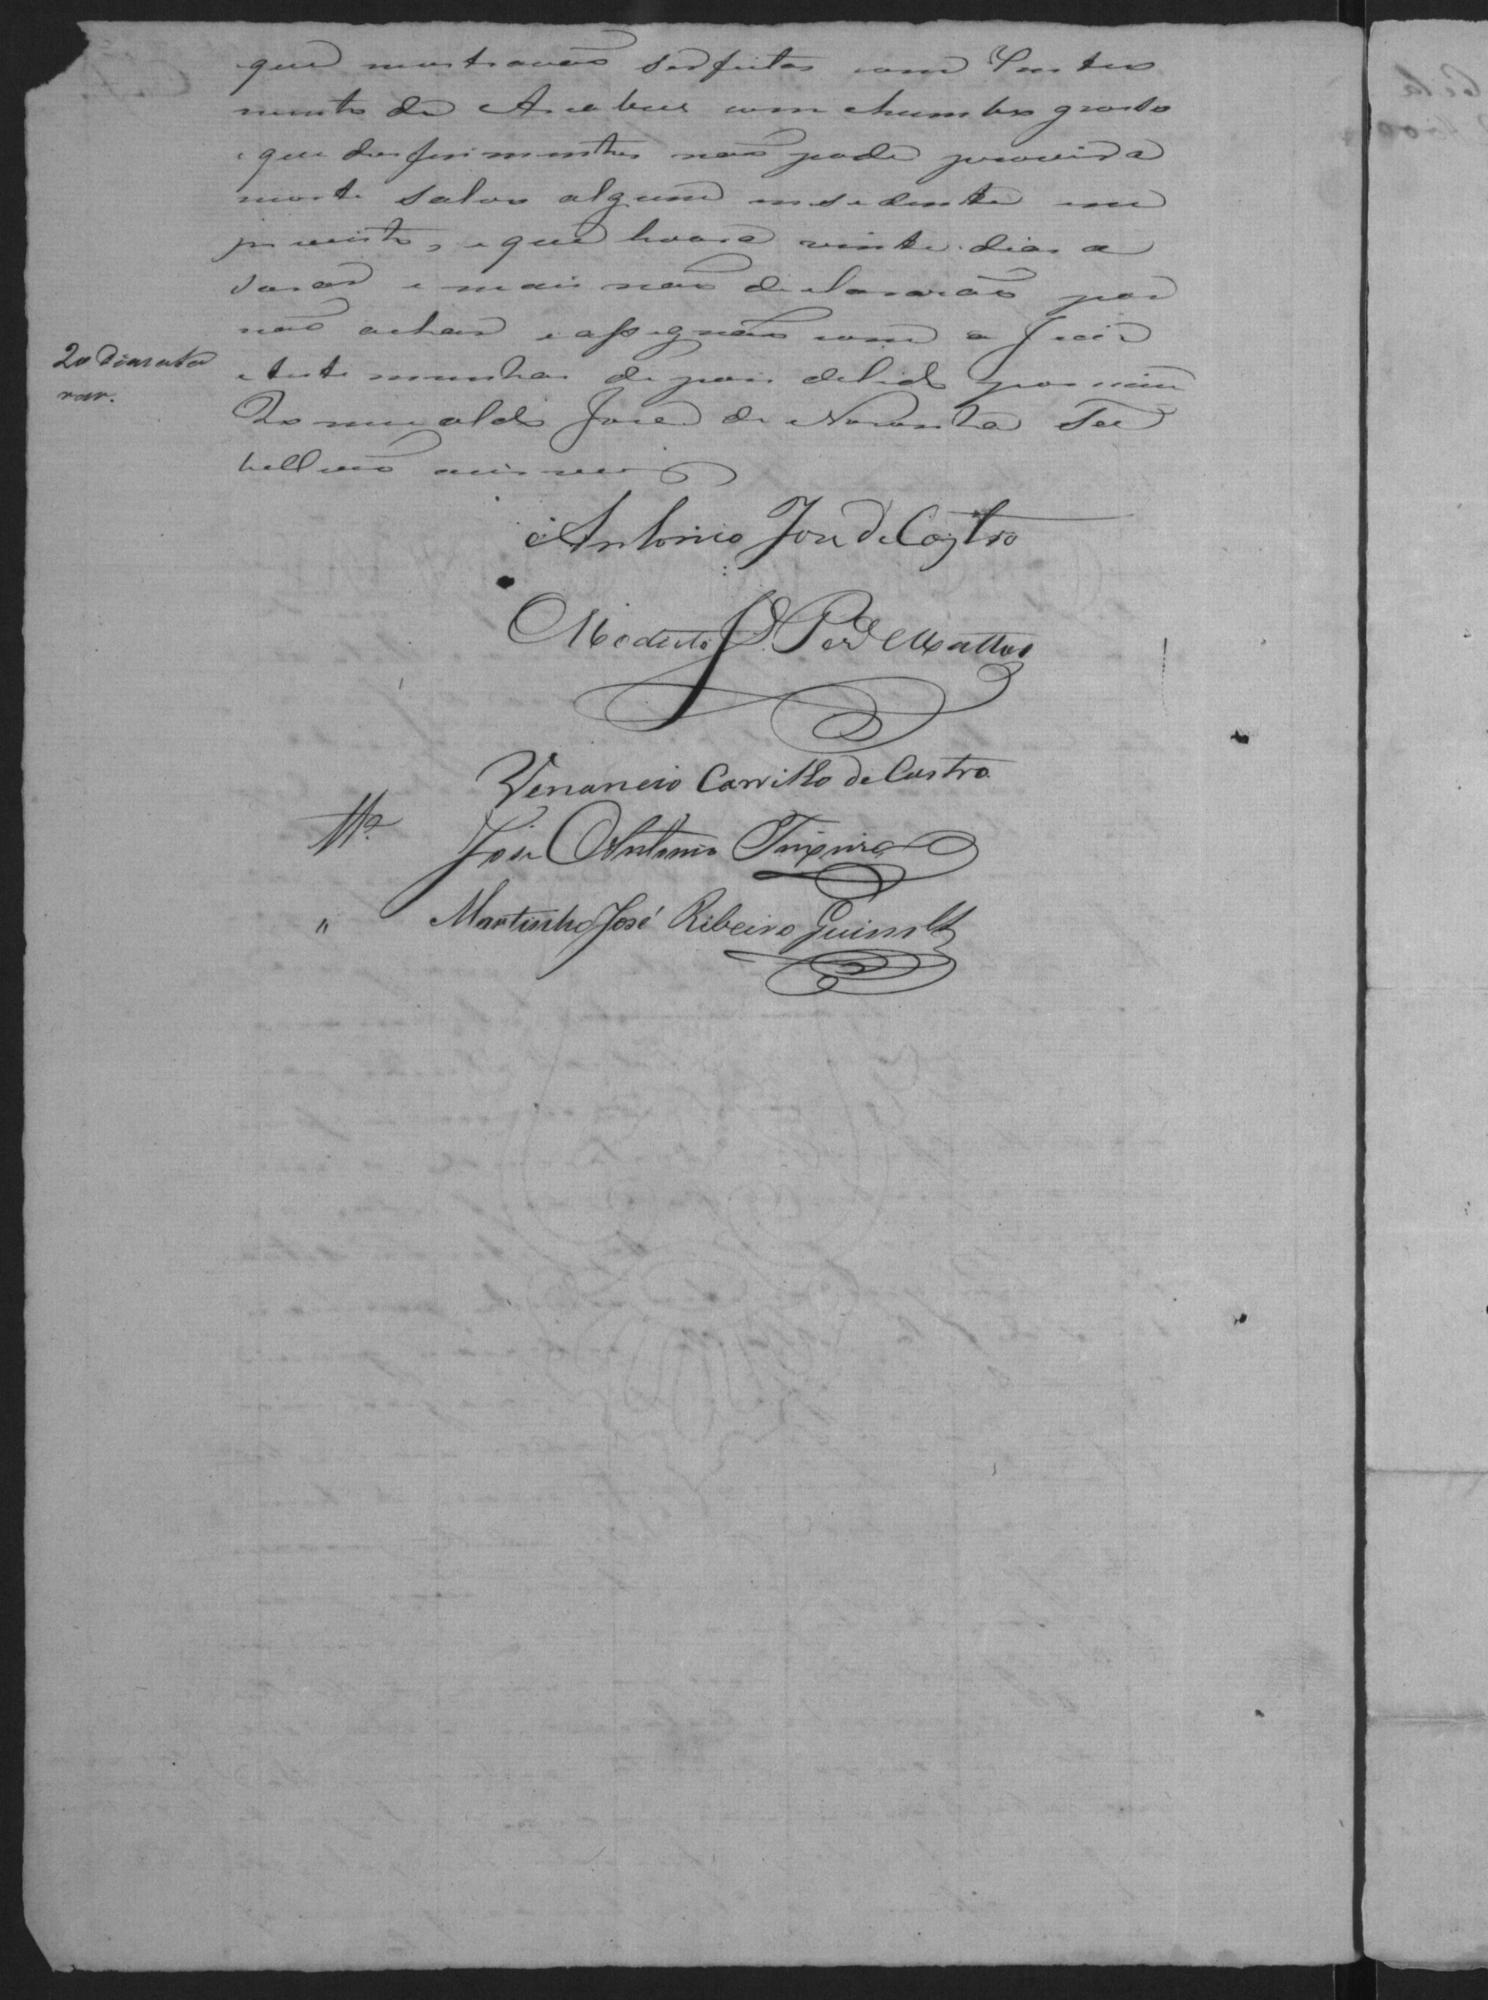 que mostravão ser feitas com Instru
mento de Arcabus com chumbo grosso
e que dos ferimentos não pode provir a
morte salvo algum insedente im
previsto, e que levará vinte dias a
sarar e mais não declararão por
não achar e assignão com o Juiz
e testemunhas depois de lido por mim
Romualdo José de Noronha Ta
bellião
20 Dias a sa
rar.
Antonio José de Castro
Modesto J. Per.ª Mattos
Venancio Carrilho de Castro
José Antonio Teixeira
" Martinho José Ribeiro Guim.es